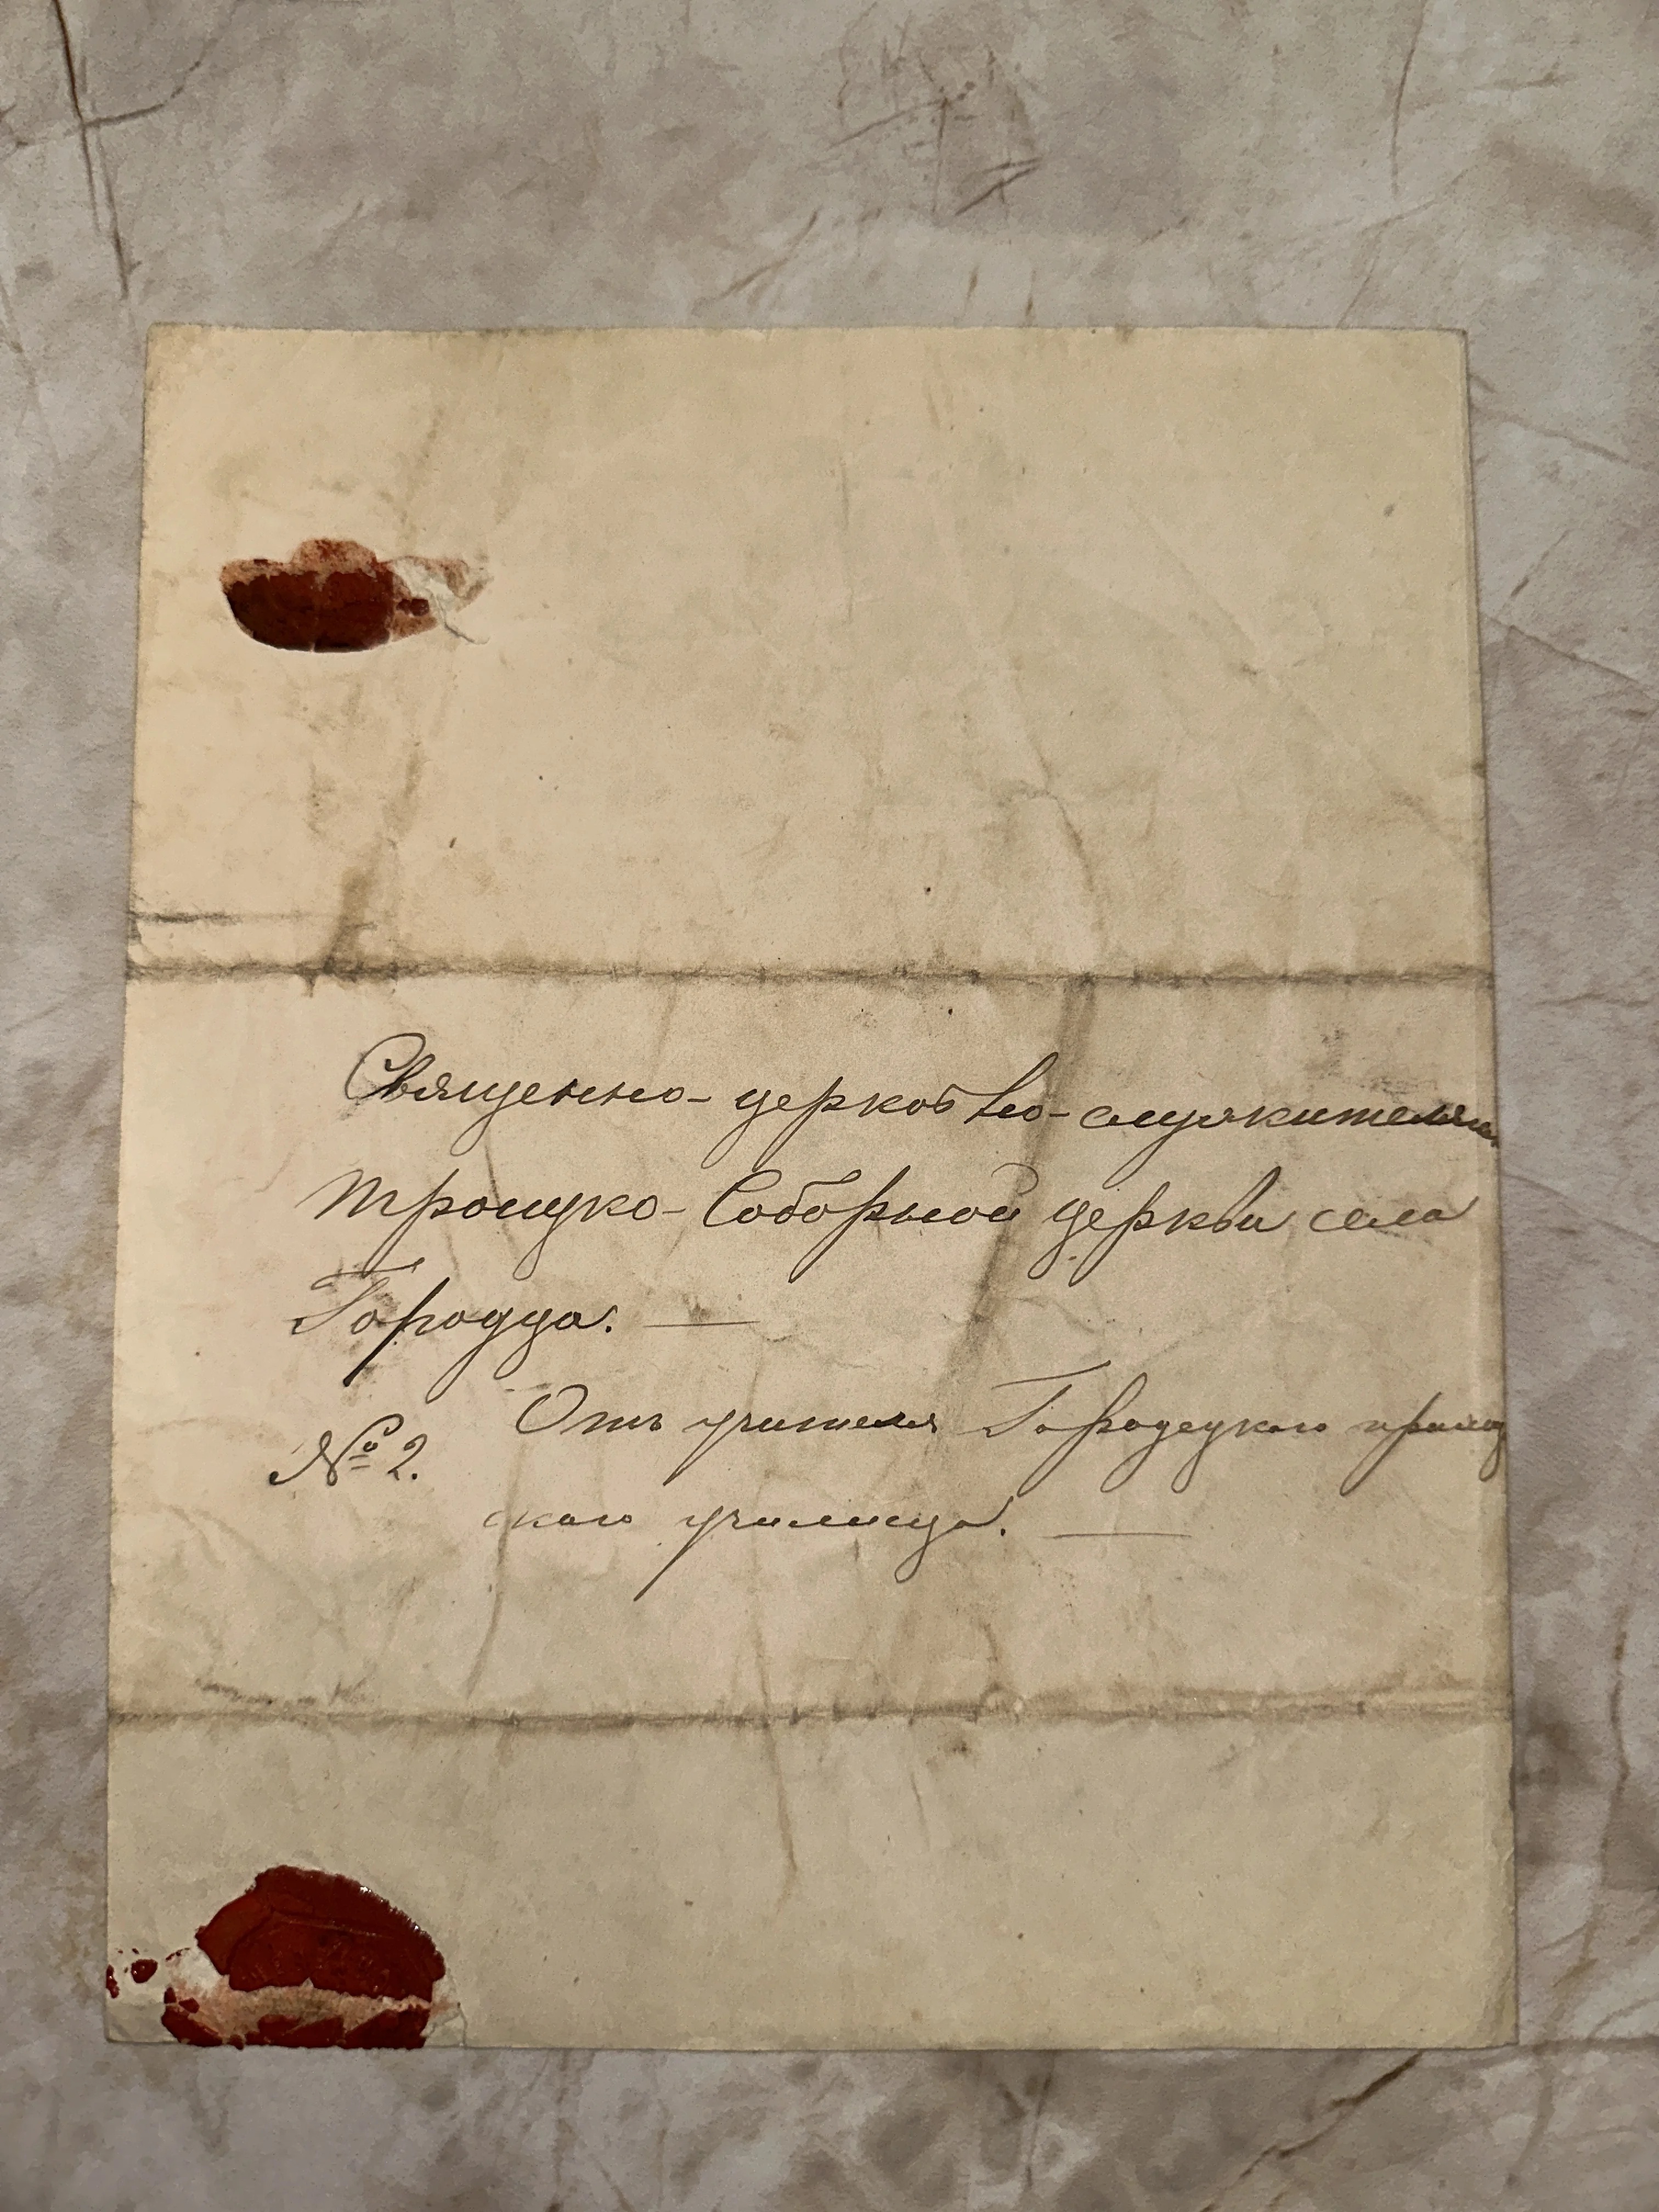 Священно-церковно-служителям
Троицко-Соборной церкви села
Городца. —
Отъ учителя Городецкаго приход
№ 2.
скаго училища. —